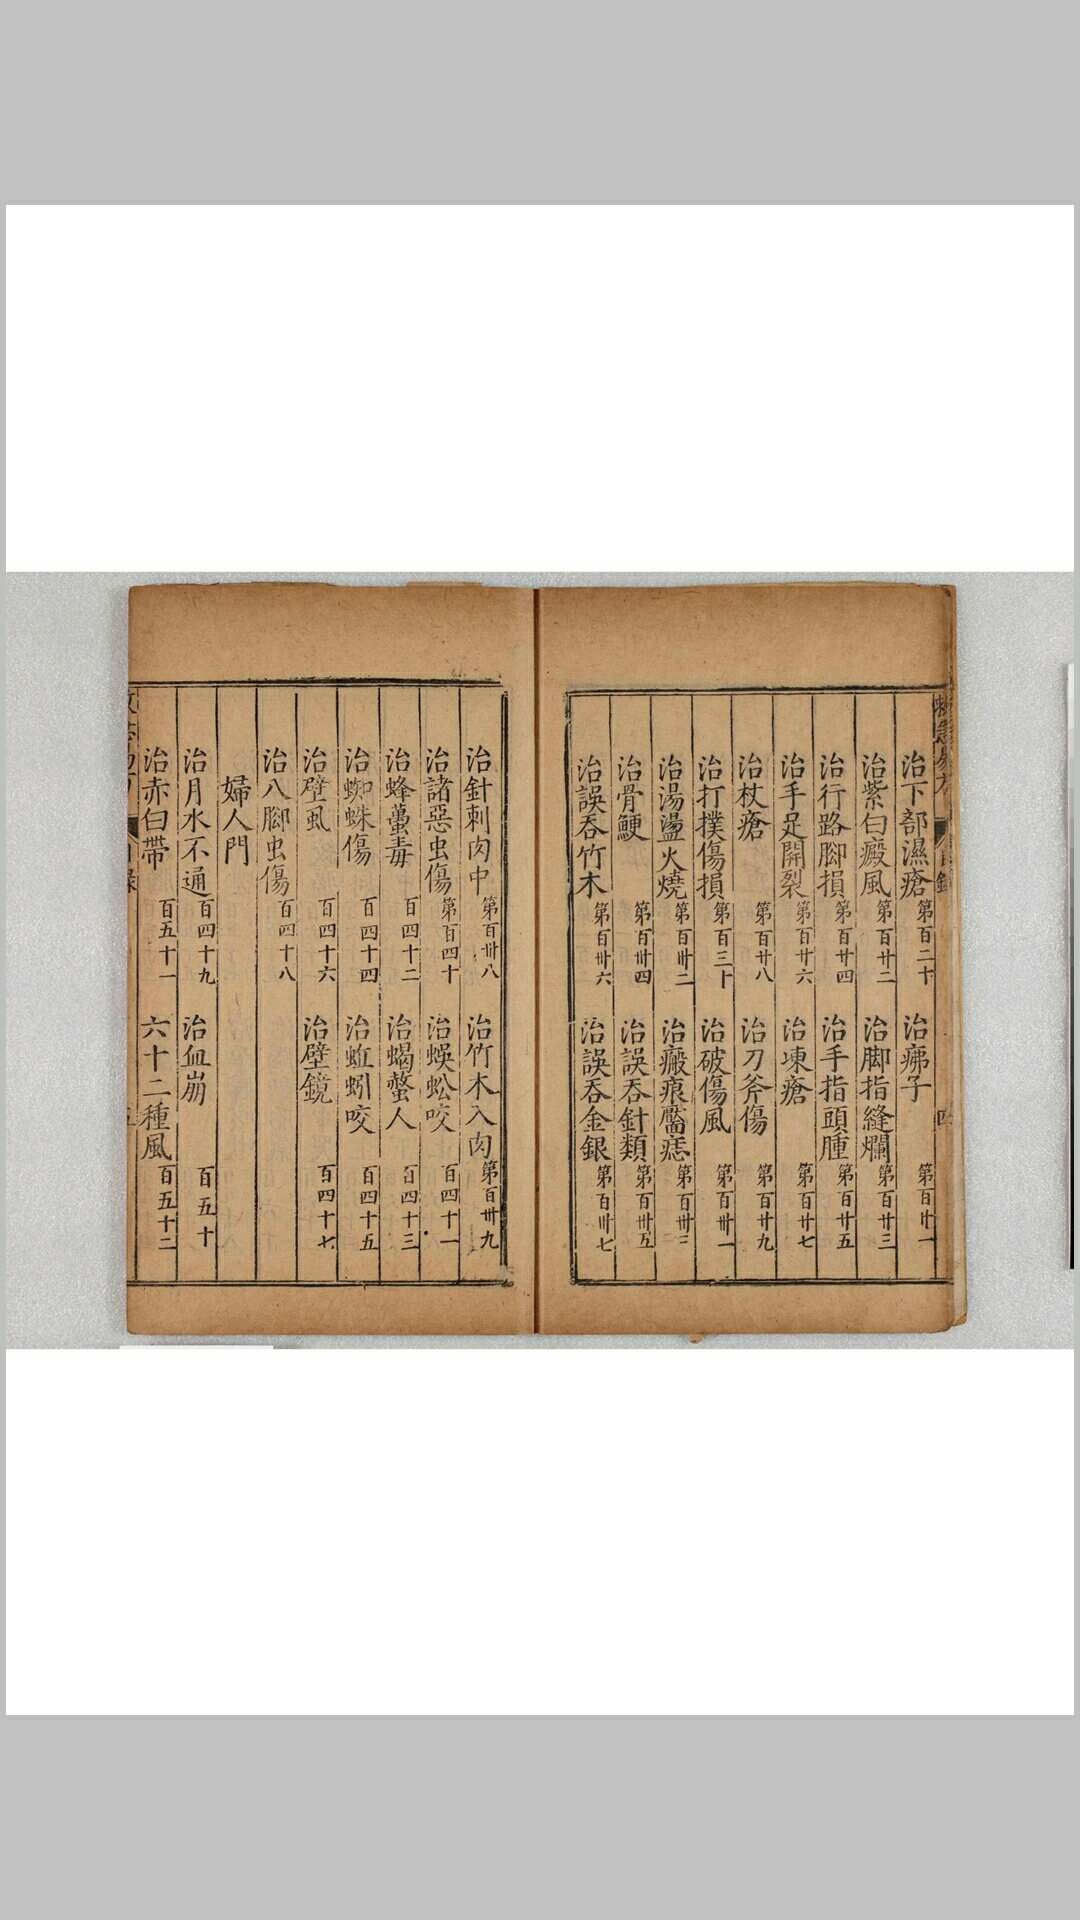 治下部濕瘡 第百二十 治疿子 第百廿一
治紫白癜風 第百廿二 治脚指縫爛 第百廿三
治行路腳損 第百廿四 治手指頭腫 第百廿五
治手足開裂 第百廿六 治凍瘡 第百廿七
治杖瘡 第百廿八 治刀斧傷 第百廿九
治打撲傷損 第百三十 治破傷風 第百卅一
治湯盪火燒 第百卅二 治瘢痕靨痣 第百卅三
治骨鯁 第百卅四 治誤吞針類 第百卅五
治誤吞竹木 第百卅六 治誤吞金銀 第百卅七
治針刺肉中 第百卅八 治竹木入肉 第百卅九
治諸惡虫傷 第百四十 治蜈蚣咬 百四十一
治蜂蠆毒 百四十二 治蝎螫人 百四十三
治蜘蛛傷 百四十四 治蚯蚓咬 百四十五
治壁虱 百四十六 治壁鏡 百四十七
治八腳虫傷 百四十八
婦人門
治月水不通 百四十九 治血崩 百五十
治赤白帶 百五十一 六十二種風 百五十二